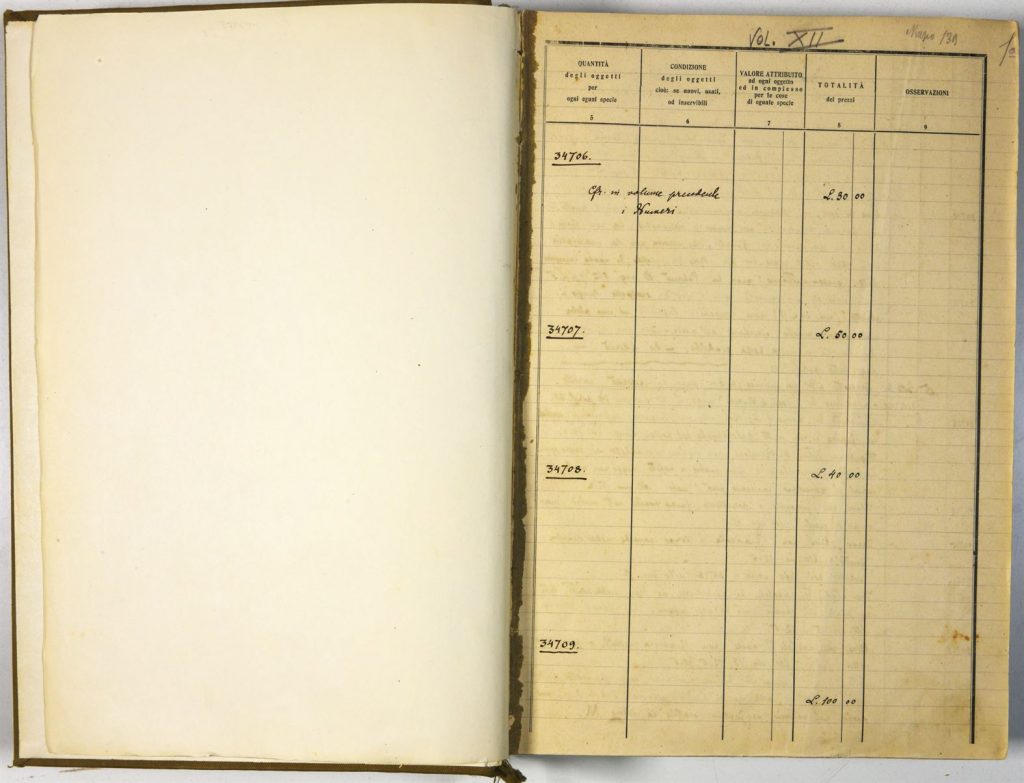 VOL. XII
1a
QUANTITÀ
degli oggetti
per
ogni eguai specie
5
CONDIZIONE
degli oggetti
cioè: se nuovi, usati,
od inservibili
6
VALORE ATTRIBUITO
ad ogni oggetto
ed in complesso
per le cose
di eguale specie
7
TOTALITÀ
dei prezzi
8
OSSERVAZIONI
9
34706.
Cfr. in volume precedente L. 30 00
i Numeri
34707. L. 50 00
34708. L. 40 00
34709.
L. 100 00